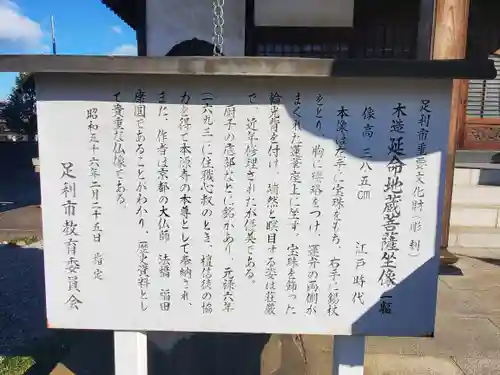 足利市重要文化財（彫刻）
木造 延命地蔵菩薩坐像 一軀
像高 三八・五㎝ 江戸時代
本像は左手に宝珠をもち、右手に錫杖
をとり、胸に瓔珞をつけ、蓮弁の両側が
まくれた蓮華座上に坐す。宝珠を飾った
輪光背を付け、端然と瞑目する姿は荘厳
で、近年修理されたが優美である。
厨子の底部などに銘があり、元禄六年
（一六九三）に住職心叔のとき、檀信徒の協
力を得て本源寺の本尊として奉納され、
また、作者は京都の大仏師 法橋 福田
康園であることがわかり、歴史資料とし
て貴重な仏像である。
昭和五十六年二月二十五日 指定
足利市教育委員会